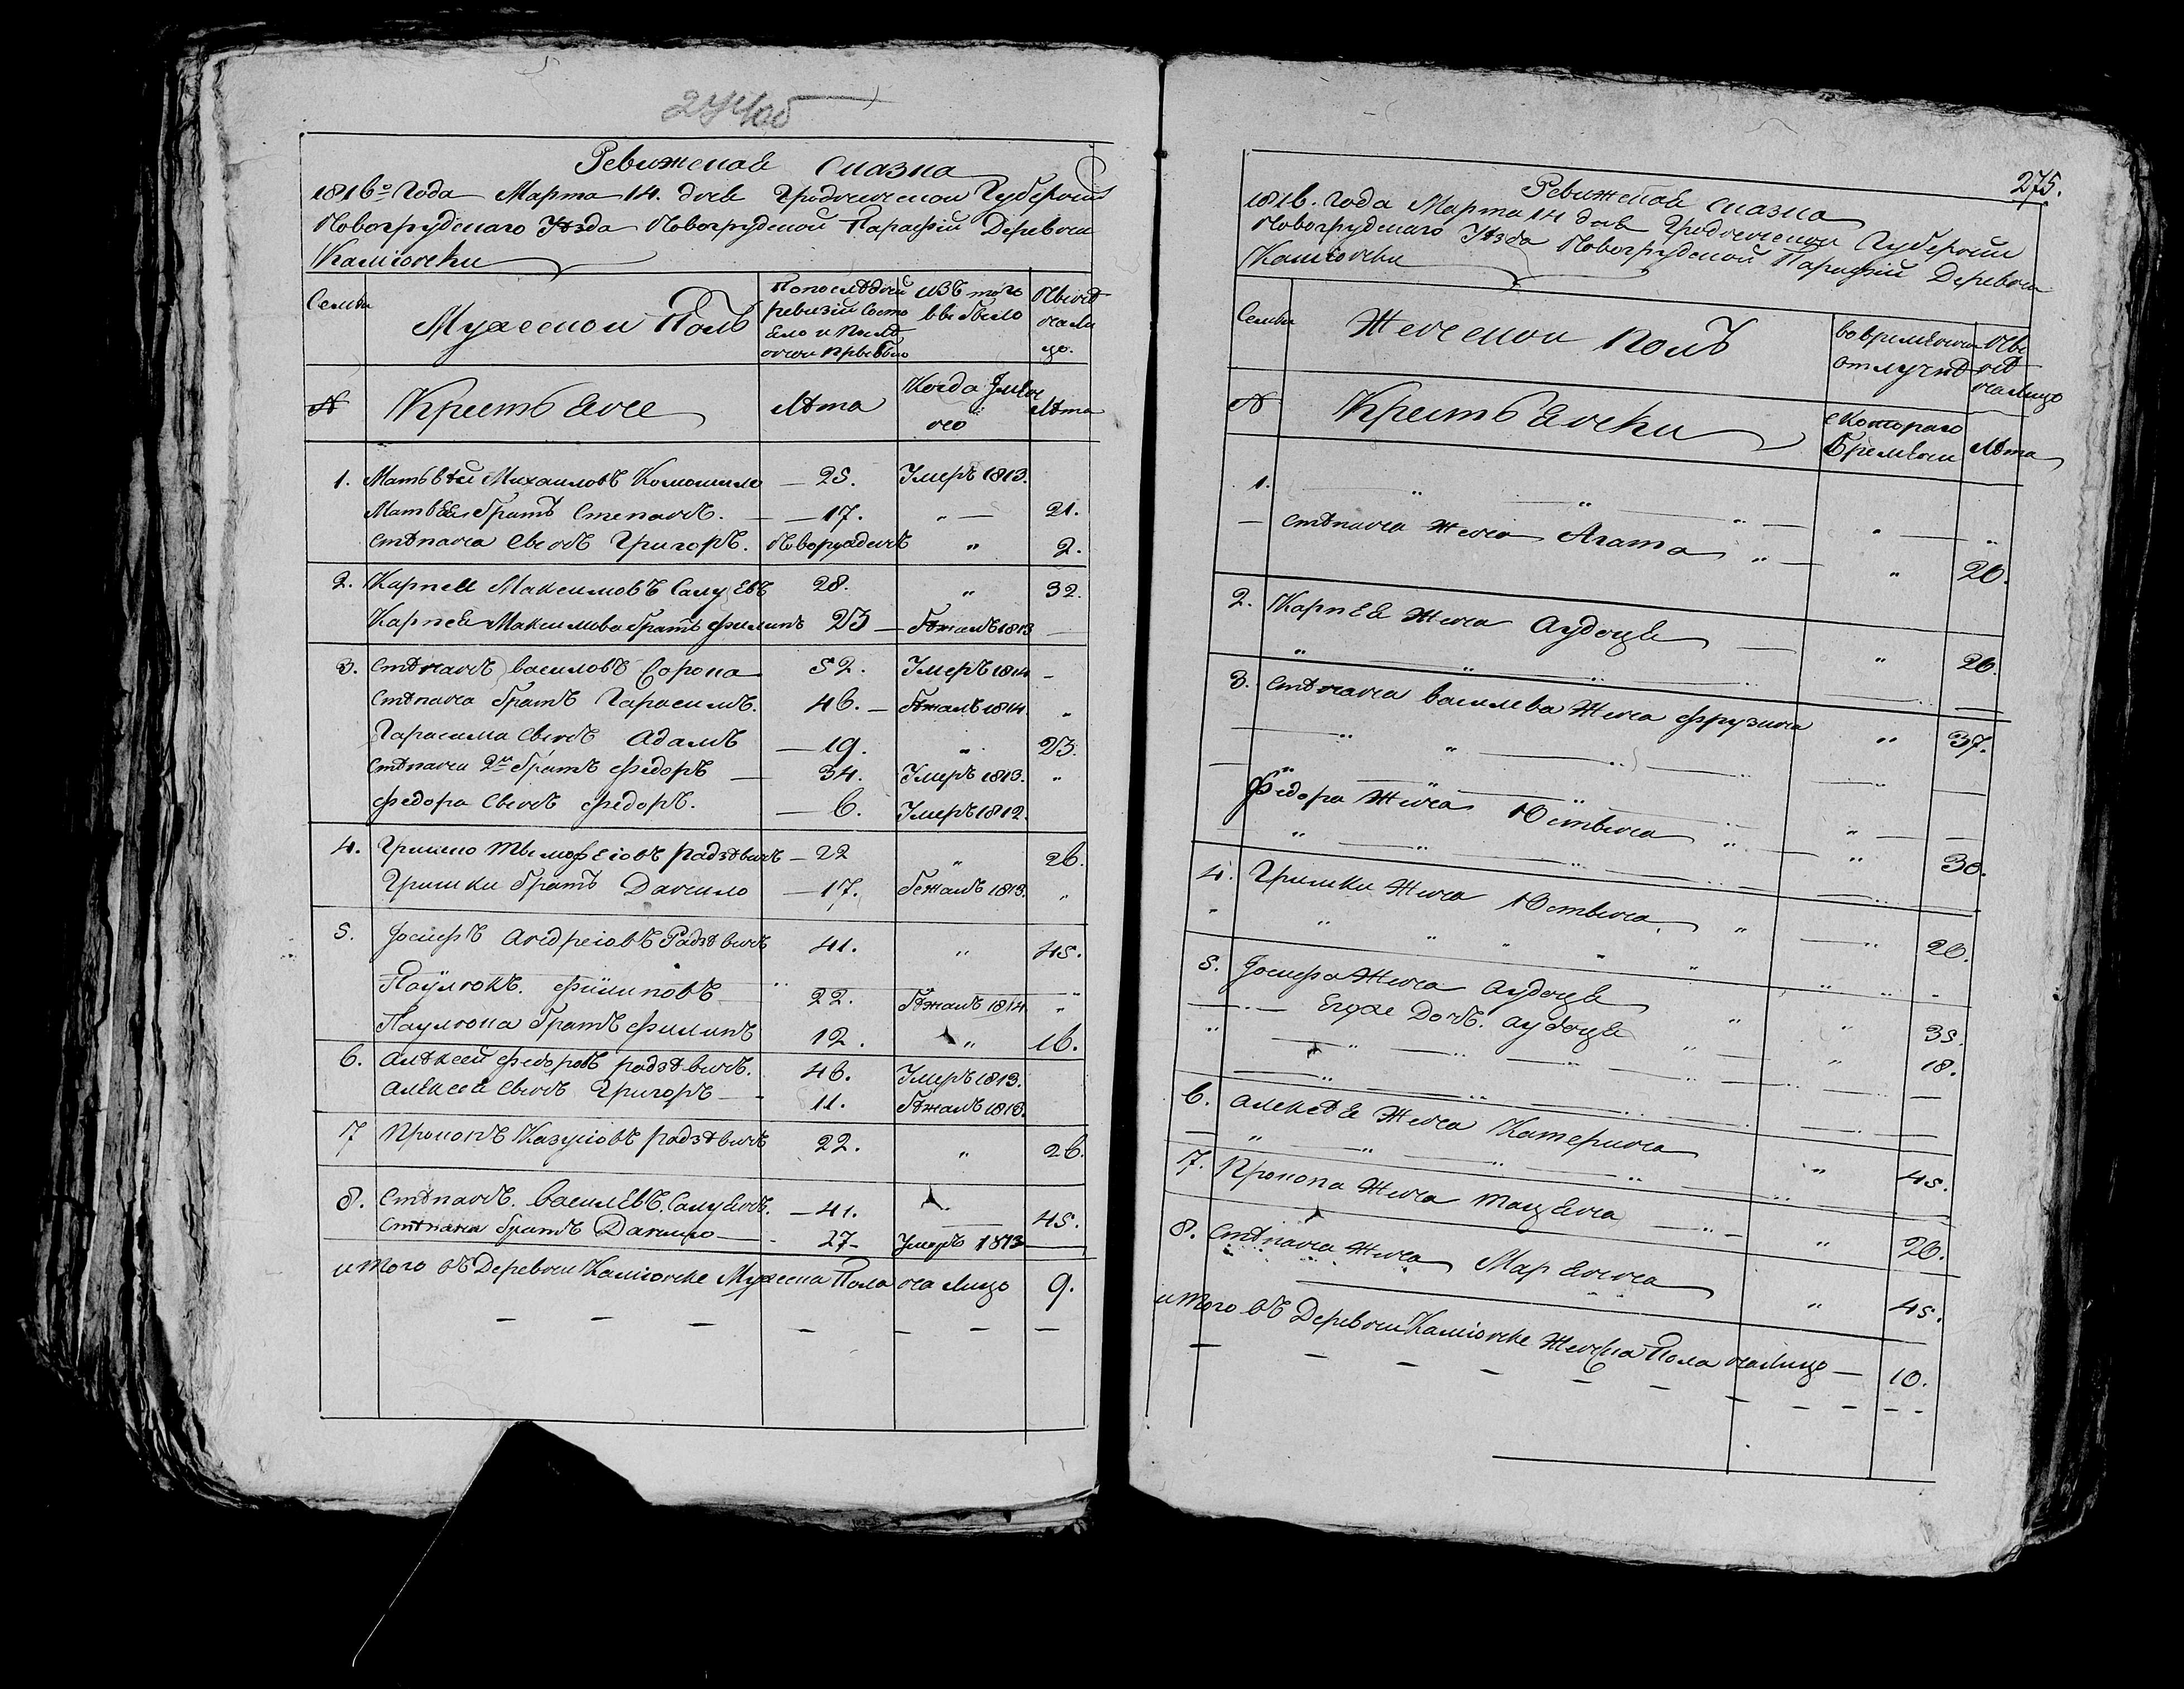 274об
Ревижская сказка
1816го Года Марта 14. дня Гродненской Губернии
Новогрудскаго Уѣзда Новогрудской Парафіи Деревни
Камионки
Семьи Мужеской Полъ По последней ревизіи Состо яло и После оной прибыло изъ того выбыло Ныне на ли цо.
№ Крестьяне Лѣта Когда Имянно Лѣта
1. Матьвѣй Михаиловъ — 25. Умеръ 1813.
Матвея братъ Степанъ. — 17. „ — 21.
Стѣпана Сынъ Григоръ. Новорожденъ „ 2.
2. Карпей Максимовъ 28. „ 32.
Карпея Максимова братъ Филипъ 23 — Бѣжалъ 1813 —
3. Стѣпанъ Василовъ Сорока 52. Умеръ 1814 —
Стѣпана братъ Гарасимъ. 46. — Бѣжалъ 1814. „
Гарасима Сынъ Адамъ — 19. „ 23.
Стѣпана 2й братъ Федоръ — 34. Умеръ 1813. „
Федора Сынъ Федоръ. — 6. Умеръ 1812.
4. Гришко Тимофеіовъ Радзѣвичъ — 22 „ 26.
Гришки братъ Данило — 17. Бежалъ 1813. „
5. Іосифъ Андреіовъ Радзѣвичъ 41. „ 45.
Паулюкъ. Филиповъ 22. Бѣжалъ 1814 „
Паулюка братъ Филипъ 12. „ 16.
6. Алѣксей Федоровъ Радзѣвичъ. 46. Умеръ 1813.
Алексея Сынъ Григоръ — 11. Бѣжалъ 1813.
7 Прокопъ Казуіовъ Радзѣвичъ 22. „ 26.
8. Стѣпанъ. Василевъ. — 41. 45.
Стѣпана братъ Данило — 27 — Умеръ 1813 —
итого въ Деревни Камионке Мужеска Пола на Лицо 9.
275.
Ревижская сказка
1816. года Марта 14 дня Гродненской Губернии
Новогрудскаго Уѣзда Новогрудской Парафіи Деревни
Камионки
Семьи Женской полъ во временной отлучкѣ Ны нѣ на Лицо
№ Крестьянки с Котораго Времени Лѣта
1. — „ — „ — „ — „
— Стѣпана Жена Агата „ — „ 20.
2. Карпея Жена Аудоця — „ 26.
„ — „ — „ — „ —
3. Стѣпана Василева Жена Фрузина „ 37.
— „ „ — „ — „ —
— „ — „ — „ — „ —
Федора Жена Юстына „ — „ 30.
„ — „ — „ — „ —
4. Гришки Жена Юстына „ — „ 20.
„ „ „ „ „ „ „ „
5. Іосифа Жена Аудоця „ „ 35.
— „ — Егоже Дочъ. Аудоця „ — „ 18.
„ — „ — „ — „ — „ —
— „ — „ — „ — „ —
6. Алексѣя Жена Катерина „ 45.
— „ — „ — „ — „ —
7. Прокопа Жена Тацяна — „ — „ 20.
8. Стѣпана Жена Марянна „ 45.
итого въ Деревни Камионке Женска Пола на Лицо — 10.